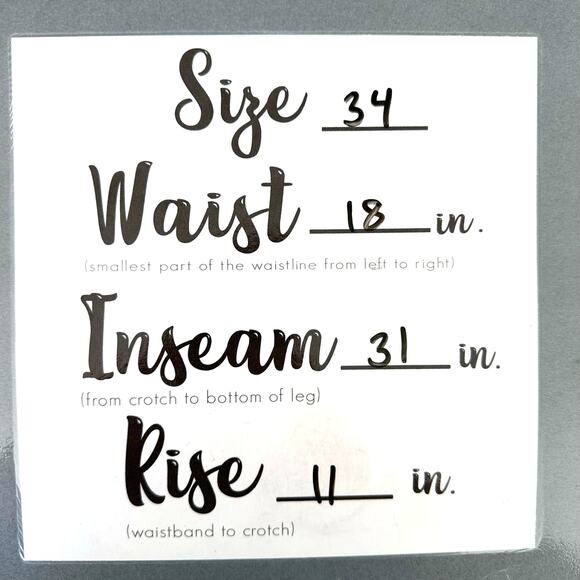 Size 34
Waist 18 in.
(smallest part of the waistline from left to right)
Inseam 31 in.
(from crotch to bottom of leg)
Rise 11 in.
(waistband to crotch)